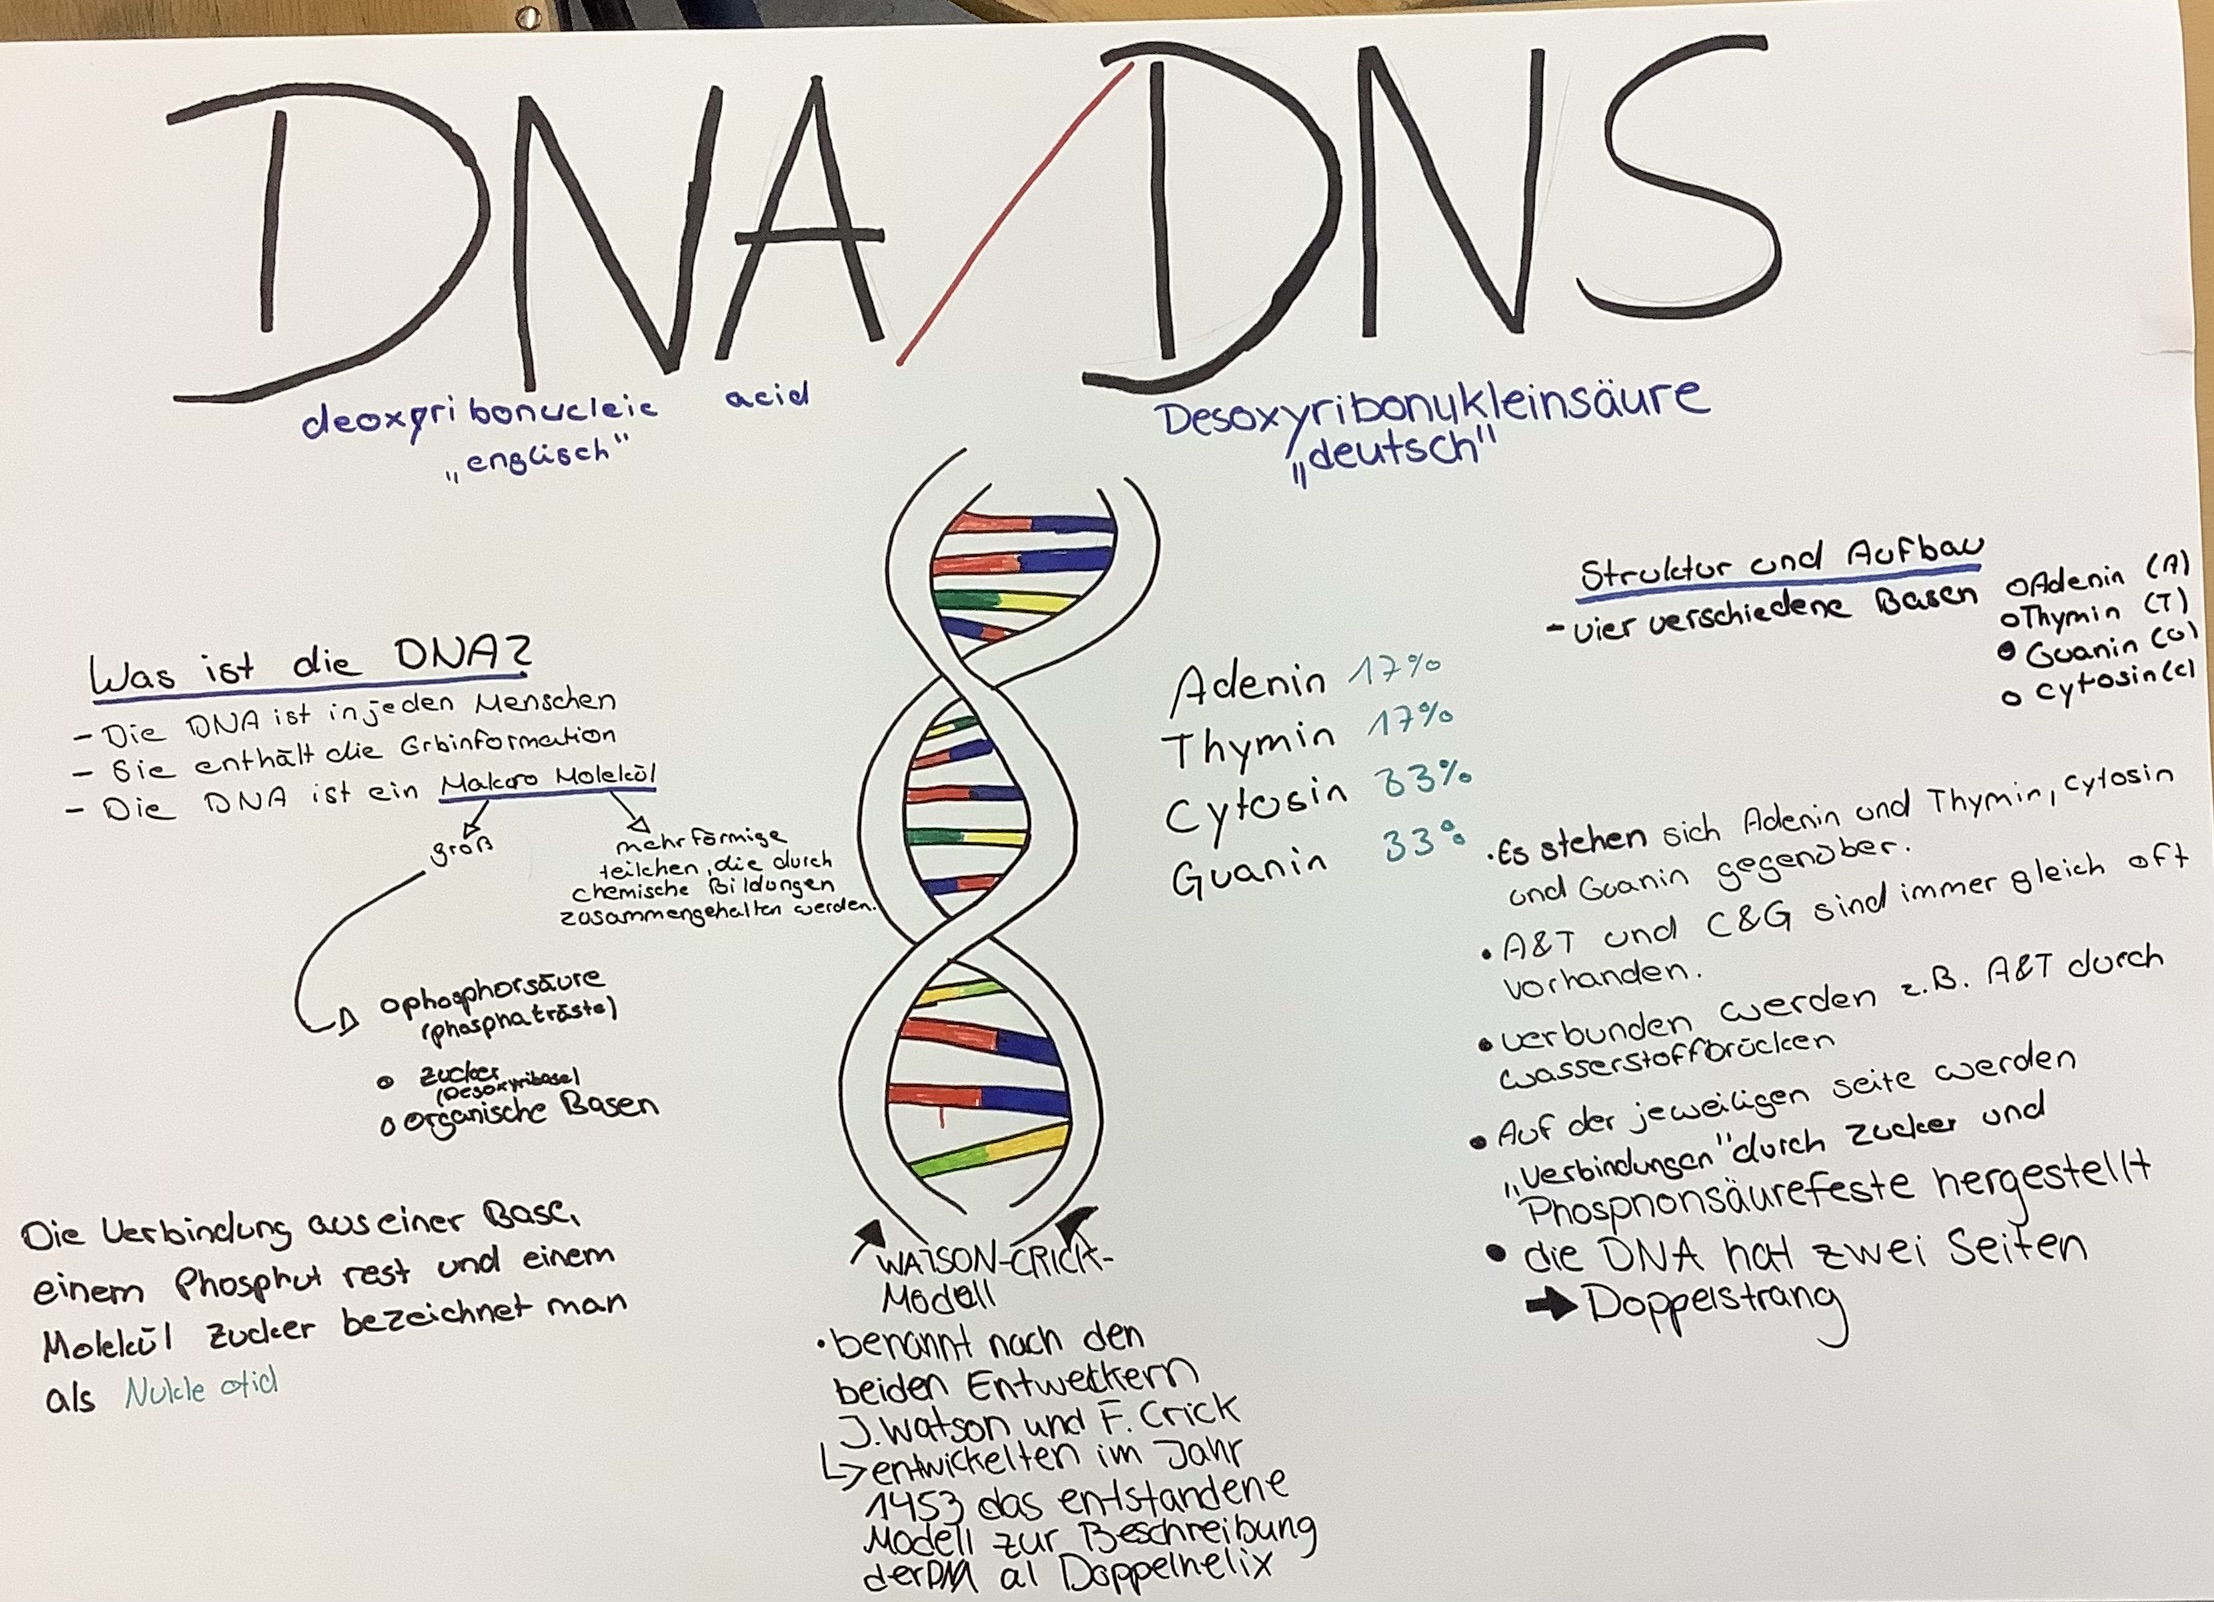 DNA / DNS
deoxyribonucleic acid
„englisch"
Desoxyribonukleinsäure
„deutsch"
Was ist die DNA?
- Die DNA ist in jeden Menschen
- Sie enthält die Erbinformation
- Die DNA ist ein Makro Molekül
groß
mehrförmige
teilchen, die durch
chemische Bildungen
zusammengehalten werden.
phosphorsäure
(phosphatråste)
zucker
(Desoxyribose)
organische Basen
Die Verbindung aus einer Base,
einem Phosphat rest und einem
Molekül Zucker bezeichnet man
als Nukleotid
Adenin 17%
Thymin 17%
Cytosin 33%
Guanin 33%
WATSON-CRICK-
Modell
• benannt nach den
beiden Entweckern
J. Watson und F. Crick
↳ entwickelten im Jahr
1453 das entstandene
Modell zur Beschreibung
der DNA al Doppelhelix
Struktur und Aufbau
- vier verschiedene Basen
Adenin (A)
Thymin (T)
Guanin (G)
Cytosin (C)
• Es stehen sich Adenin und Thymin, Cytosin
und Guanin gegenüber.
• A&T und C&G sind immer gleich oft
vorhanden.
• verbunden werden z.B. A&T durch
wasserstoffbrücken
• Auf der jeweiligen seite werden
„Verbindungen" durch Zucker und
Phosphonsäurefeste hergestellt
• die DNA hat zwei Seiten
→ Doppelstrang